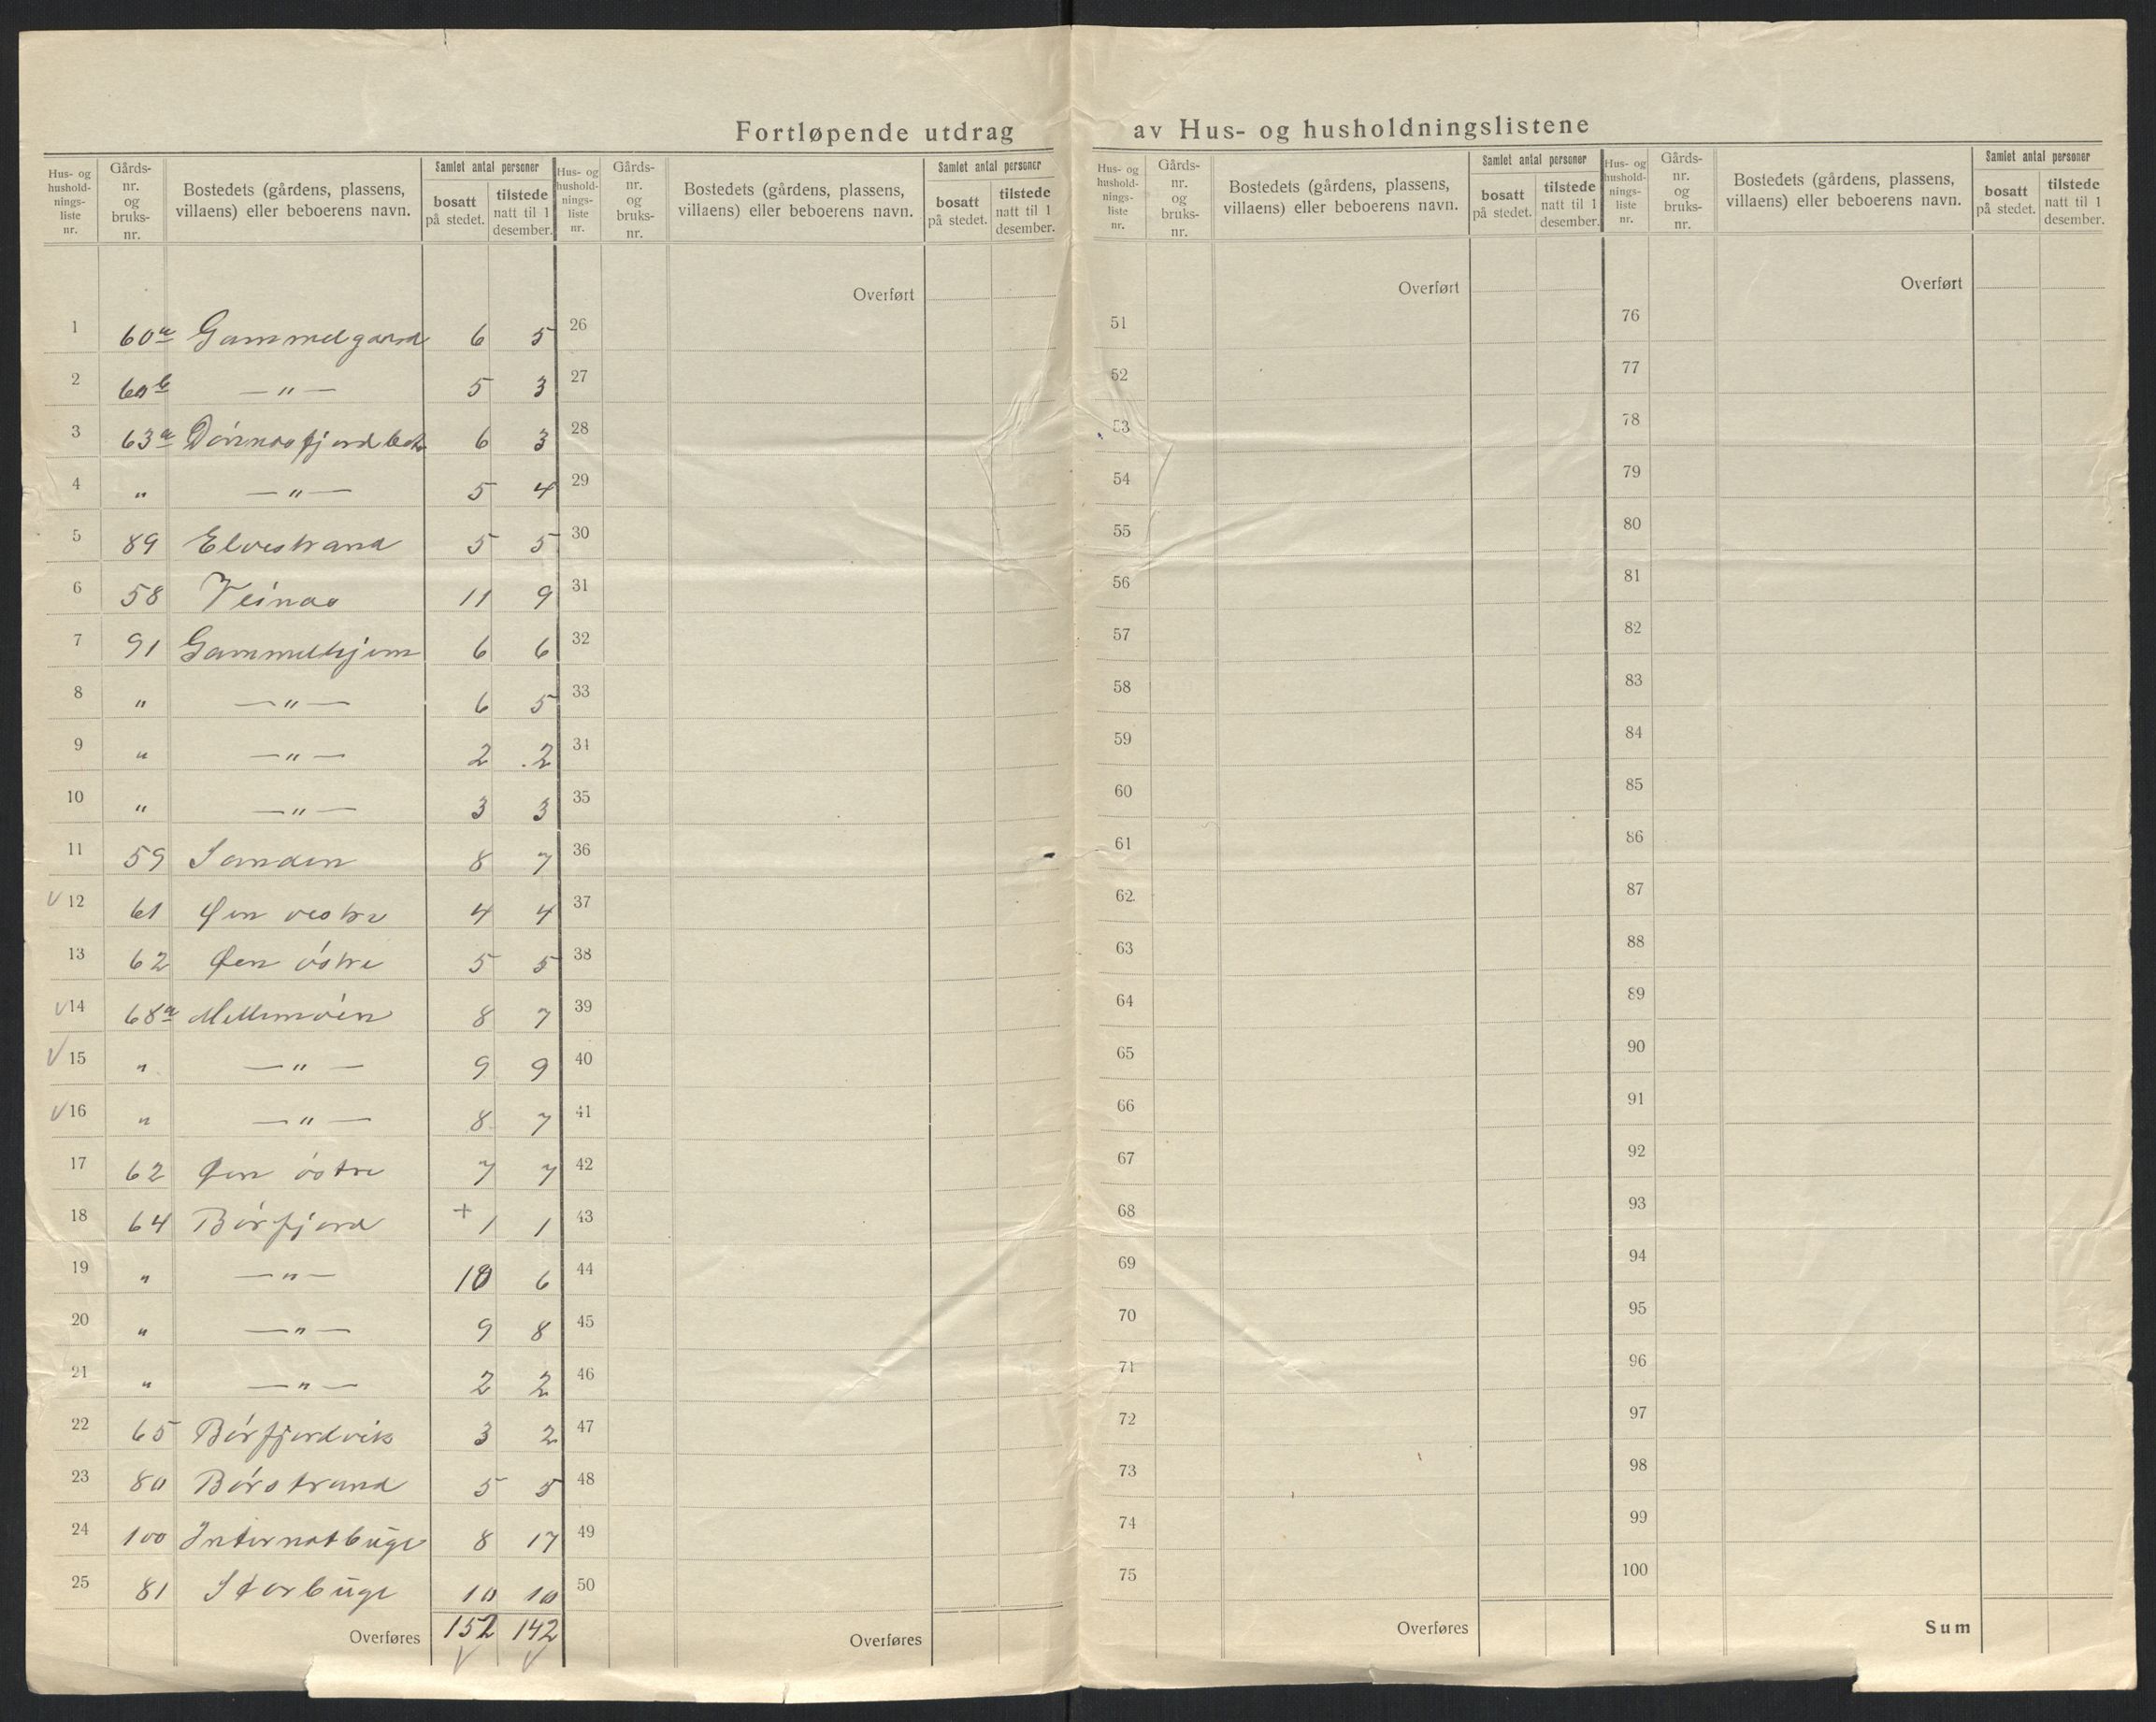 Fortløpende utdrag av Hus- og husholdningslistene
Hus- og hushold- nings- liste nr. Gårds- nr. og bruks- nr. Bostedets (gårdens, plassens, villaens) eller beboerens navn. Samlet antal personer bosatt på stedet. tilstede natt til 1 desember.
1 60a Gammelgaard 6 5
2 60b —"— 5 3
3 63a Dönnesfjordbotn 6 3
4 " —"— 5 4
5 89 Elvestrand 5 5
6 58 Veines 11 9
7 91 Gammelhjem 6 6
8 " —"— 6 5
9 " —"— 2 2
10 " —"— 3 3
11 59 Sanden 8 7
V 12 61 Øen vestre 4 4
13 62 Øen östre 5 5
V 14 68a Mellemöen 8 7
V 15 " —"— 9 9
V 16 " —"— 8 7
17 62 Øen östre 7 7
18 64 Börfjord + 1 1
19 " —"— 10 6
20 " —"— 9 8
21 " —"— 2 2
22 65 Börfjordvik 3 2
23 80 Börstrand 5 5
24 100 Internatbugt 8 17
25 81 Storbugt 10 10
Overføres 152 142
V V
Hus- og hushold- nings- liste nr. Gårds- nr. og bruks- nr. Bostedets (gårdens, plassens, villaens) eller beboerens navn. Samlet antal personer bosatt på stedet. tilstede natt til 1 desember.
Overført
26
27
28
29
30
31
32
33
34
35
36
37
38
39
40
41
42
43
44
45
46
47
48
49
50
Overføres
Hus- og hushold- nings- liste nr. Gårds- nr. og bruks- nr. Bostedets (gårdens, plassens, villaens) eller beboerens navn. Samlet antal personer bosatt på stedet. tilstede natt til 1 desember.
Overført
51
52
53
54
55
56
57
58
59
60
61
62
63
64
65
66
67
68
69
70
71
72
73
74
75
Overføres
Hus- og hushold- nings- liste nr. Gårds- nr. og bruks- nr. Bostedets (gårdens, plassens, villaens) eller beboerens navn. Samlet antal personer bosatt på stedet. tilstede natt til 1 desember.
Overført
76
77
78
79
80
81
82
83
84
85
86
87
88
89
90
91
92
93
94
95
96
97
98
99
100
Sum